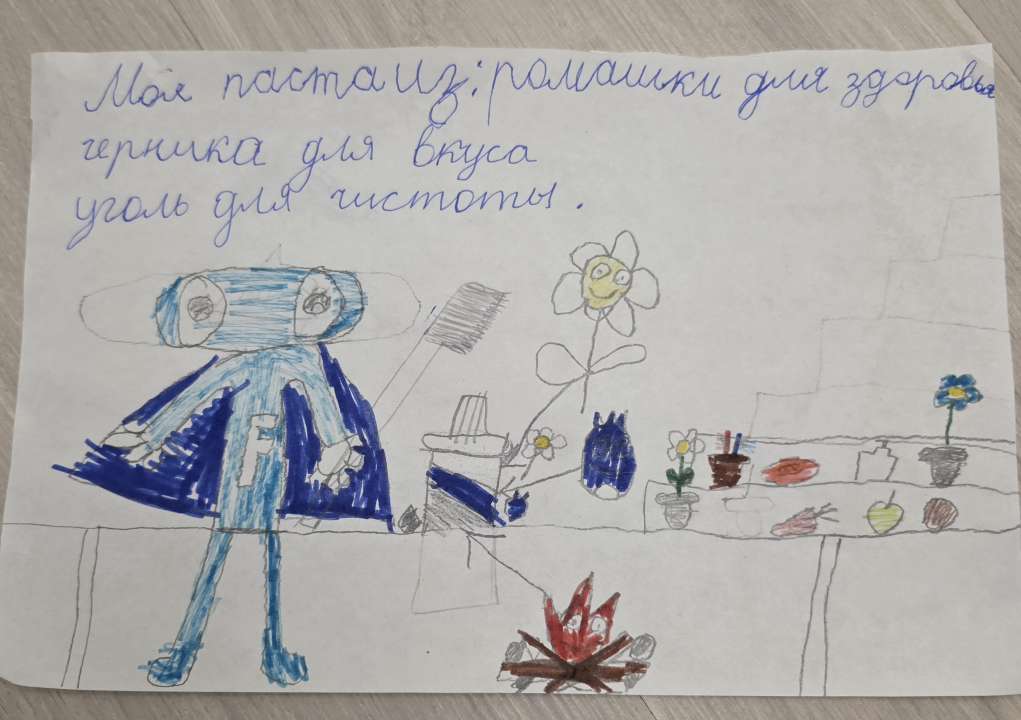 Моя паста из: ромашки для здоровья
черника для вкуса
уголь для чистоты.
F